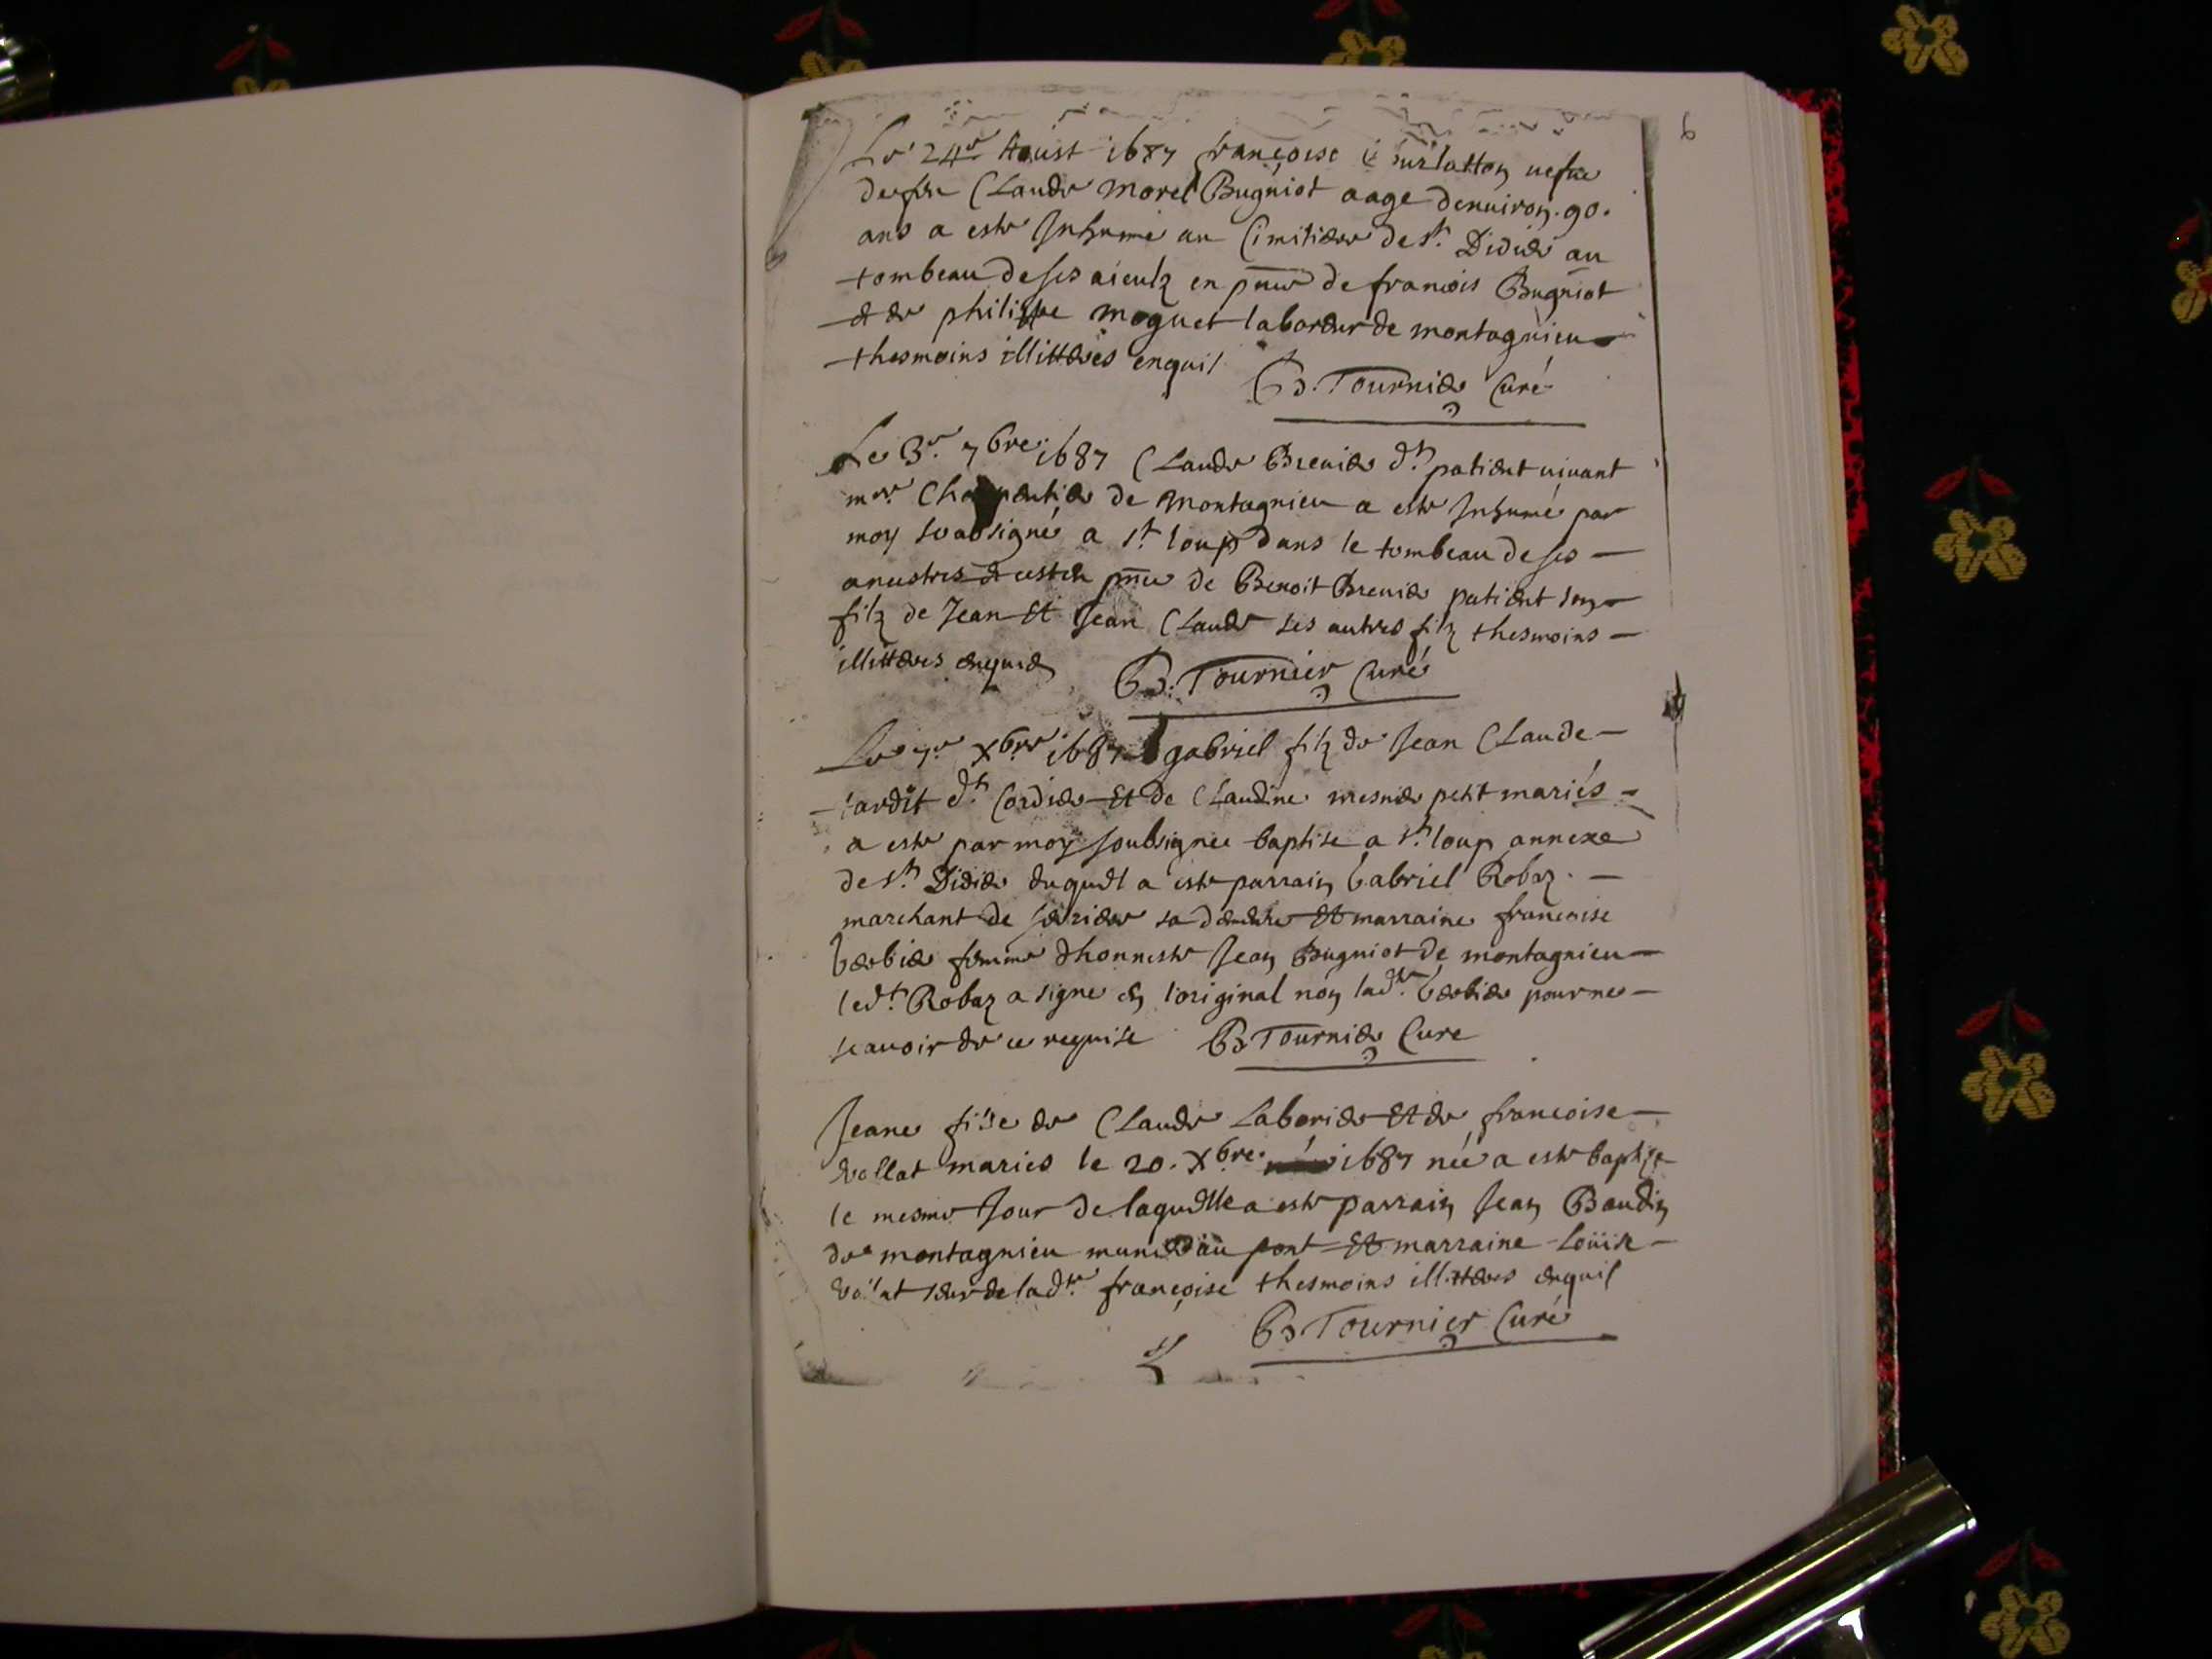 6
Le 24e Aoust 1687 françoise vefve
de feu Claude morel Bugniot aage denuiron .90.
ans a este Inhumé au Cimitiere de st. Didier au
tombeau de ses aieulz en pnce de francois Bugniot
et de philippe moguet laboreur de montagnieu
thesmoins illitteres enquil
B. Tournier Curé
Le 3e. 7bre 1687 Claude Brenier dt. patient uivant
mre. Charpentier de Montagnieu a este Inhumé par
moy soubsigné a st. loup dans le tombeau de ses
ancestres et cest en pnce de Benoit Brenier patient son
filz de Jean Et Jean Claude ses autres filz thesmoins
illitteres enquis
B. Tournier Curé
Le 7e xbre 1687 gabriel filz de Jean Claude
tardit dt. Cordier Et de Claudine mesnier petit mariés
a este par moy soubsigne baptise a st. loup annexe
de st. Didier duquel a este parrain Gabriel Robaz
marchant de Et marraine francoise
berbier femme dhonneste Jean Bugniot de montagnieu
ledt. Robaz a signe en l'original non ladte. berbier pour ne
scauoir de ce requise B. Tournier Cure
Jeane fille de Claude Laborier Et de francoise
vollat maries le 20. xbre 1687 née a este baptise
le mesme Jour de laquelle a este parrain Jean Baudin
de montagnieu munier au pont Et marraine Loüise
vollat seur de ladte. françoise thesmoins illitteres enquil
B Tournier Curé